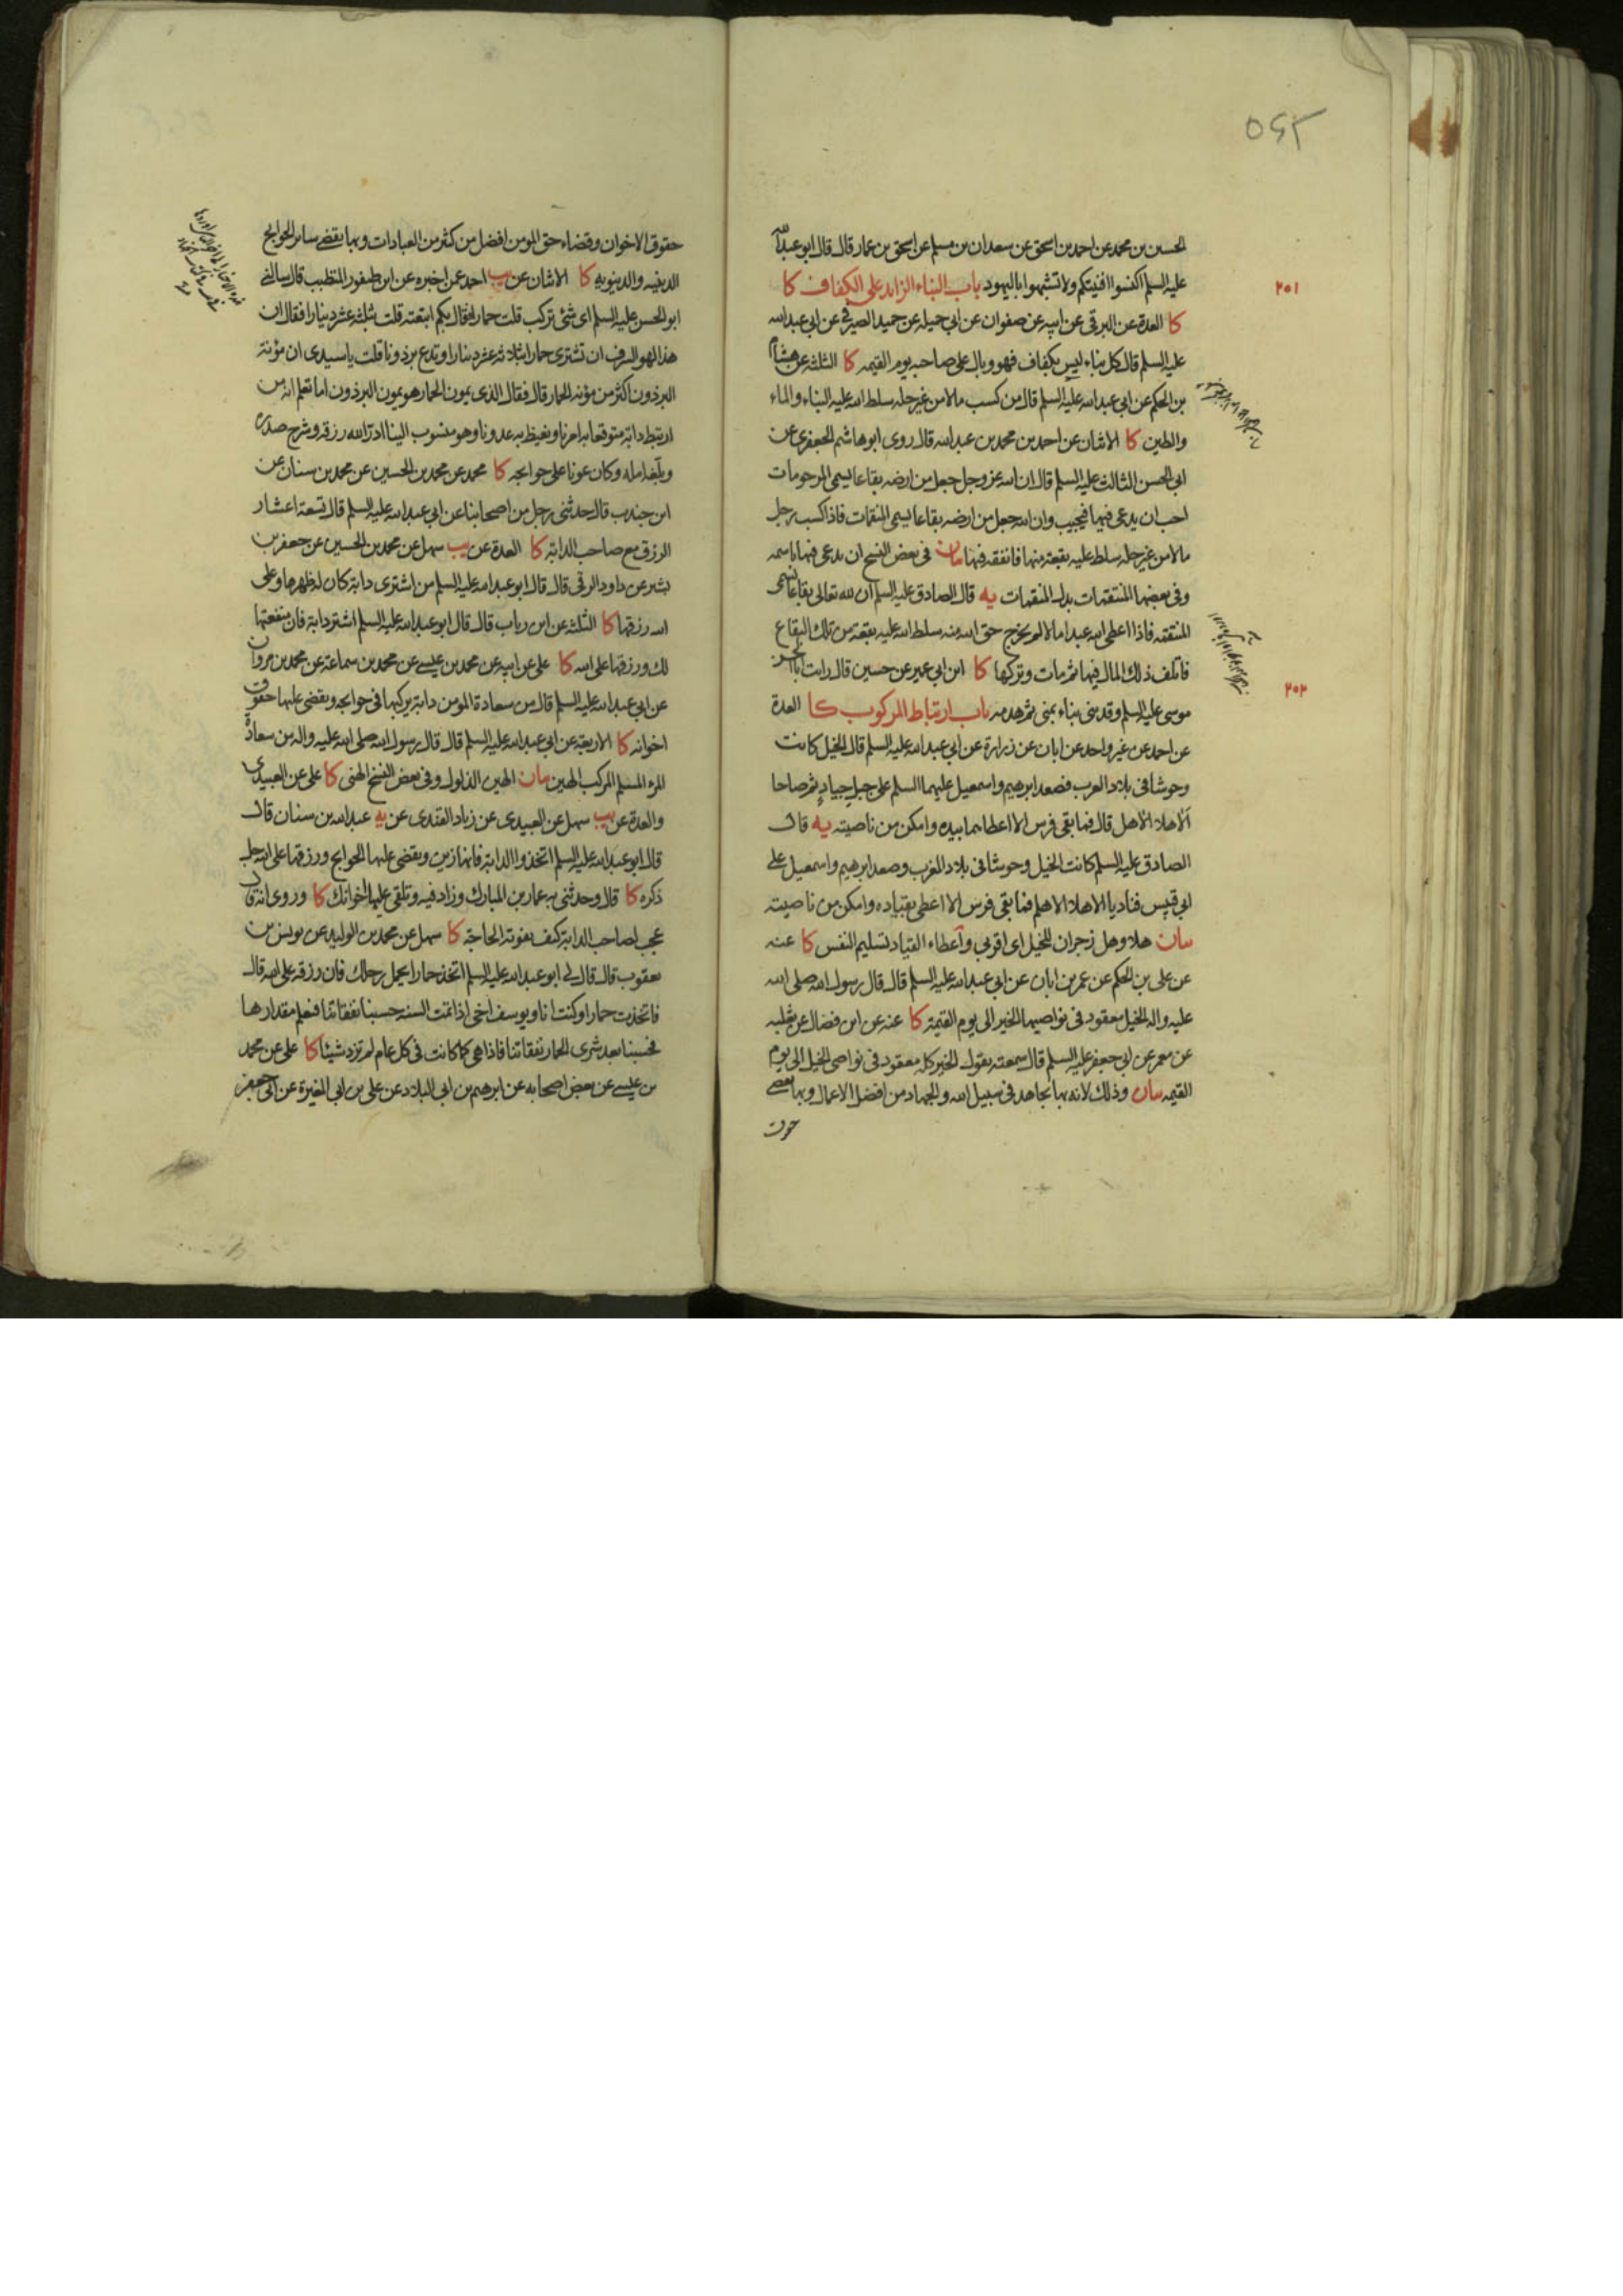 ٥٤٢
الحسين بن محمد عن احمد بن اسحق عن سعدان بن مسلم عن اسحق بن عمار قال قال ابو عبدالله
عليه السلم اكنسوا افنيتكم ولا تشبهوا باليهود باب البناء الزايد على الكفاف كا
٢٠١
كا العدة عن البرقى عن ابيه عن صفوان عن ابى جميله عن حميد الصيرفى عن ابى عبد الله
عليه السلم قال كل بناء ليس بكفاف فهو وبال على صاحبه يوم القيمه كا الثلثة عن هشام
بن الحكم عن ابى عبد الله عليه السلم قال من كسب مالا من غير حله سلط الله عليه البناء والماء
والطين كا الاثنان عن احمد بن محمد بن عبد الله قال روى ابو هاشم الجعفرى عن
ابى الحسن الثالث عليه السلم قال ان الله عز وجل جعل من ارضه بقاعا يسمى المرحومات
احب ان يدعى فيها فيجيب وان الله جعل من ارضه بقاعا يسمى المنتقمات فاذا كسب رجل
مالا من غير حله سلط عليه بقعة منها فانفقه فيها بيان فى بعض النسخ ان يدعى فيها باسمه
وفى بعضها المنتقمات بدل المنقمات يه قال الصادق عليه السلم ان لله تعالى بقاعا تسمى
المنتقمه فاذا اعطى الله عبدا مالا لم يخرج حق الله منه سلط الله عليه بقعة من تلك البقاع
فاتلف ذلك المال فيها ثم مات وتركها كا ابن ابى عمير عن حسين قال رايت ابا الحسن
موسى عليه السلم وقد بنى بناء بمنى ثم هدمه باب ارتباط المركوب كا العدة
٢٠٢
عن احمد عن غير واحد عن ابان عن زرارة عن ابى عبد الله عليه السلم قال الخيل كانت
وحوشا فى بلاد العرب فصعد ابرهيم واسمعيل عليهما السلم على جبل جياد ثم صاحا
الا هلا الا هل قال فما بقى فرس الا اعطاهما بيده وامكن من ناصيته يه قال
الصادق عليه السلم كانت الخيل وحوشا فى بلاد العرب وصعد ابرهيم واسمعيل على
ابى قبيس فناديا الا هلا الا هلم فما بقى فرس الا اعطى بقياده وامكن من ناصيته
بيان هلا وهل زجران للخيل اى اقربى واعطاء القياد تسليم النفس كا عنه
عن على بن الحكم عن عمر بن ابان عن ابى عبد الله عليه السلم قال قال رسول الله صلى الله
عليه واله الخيل معقود فى نواصيها الخير الى يوم القيمة كا عنه عن ابن فضال عن ثعلبه
عن معمر عن ابى جعفر عليه السلم قال سمعته يقول الخير كله معقود فى نواصى الخيل الى يوم
القيمه بيان وذلك لانه بها يجاهد فى سبيل الله والجهاد من افضل الاعمال وبها يقضى
حقوق
حقوق الاخوان وقضاء حق المومن افضل من كثير من العبادات وبها يقضى ساير الحوايج
الدينيه والدنيويه كا الاثنان عن يب احمد عمن اخبره عن ابن طيفور المتطبب قال سالنى
ابو الحسن عليه السلم اى شئ تركب قلت حمارا فقال بكم ابتعته قلت بثلثه عشر دينارا فقال ان
هذا لهو السرف ان تشترى حمارا بثلاثه عشر دينارا وتدع برذونا قلت يا سيدى ان مؤنة
البرذون اكثر من مؤنه الحمار قال فقال الذى يمون الحمار هو يمون البرذون اما تعلم انه من
ارتبط دابة متوقعا به امرنا ويغيظ به عدونا وهو منسوب الينا ادر الله رزقه وشرح صدره
وبلغه امله وكان عونا على حوايجه كا محمد عن محمد بن الحسين عن محمد بن سنان عن
ابن جندب قال حدثنى رجل من اصحابنا عن ابى عبد الله عليه السلم قال تسعة اعشار
الرزق مع صاحب الدابة كا العدة عن يب سهل عن محمد بن الحسين عن جعفر بن
بشير عن داود الرقى قال قال ابو عبد الله عليه السلم من اشترى دابة كان له ظهرها وعلى
الله رزقها كا الثلثه عن ابن رياب قال قال ابو عبد الله عليه السلم اشتر دابة فان منفعتها
لك ورزقها على الله كا على عن ابيه عن محمد بن عيسى عن محمد بن سماعة عن محمد بن مروان
عن ابى عبد الله عليه السلم قال من سعادة المومن دابة يركبها فى حوايجه ويقضى عليها حقوق
اخوانه كا الاربعة عن ابى عبد الله عليه السلم قال قال رسول الله صلى الله عليه واله من سعادة
المرء المسلم المركب الهين بيان الهين الذلول وفى بعض النسخ الهنى كا على عن العبيدى
والعدة عن يب سهل عن العبيدى عن زياد القندى عن يه عبد الله بن سنان قال
قال ابو عبد الله عليه السلم اتخذوا الدابة فانها زين ويقضى عليها الحوايج ورزقها على الله جل
ذكره كا قال وحدثنى به عمار بن المبارك وزاد فيه وتلقى عليها اخوانك كا وروى انه قال
عجب لصاحب الدابة كيف يفوته الحاجة كا سهل عن محمد بن الوليد عن يونس بن
يعقوب قال قال لى ابو عبد الله عليه السلم اتخذ حمارا يحمل رحلك فان رزقه على الله قال
فاتخذت حمارا وكنت انا ويوسف اخى اذا تمت السنه حسبنا نفقاتنا فنعلم مقدارها
فحسبنا بعد شرى الحمار نفقاتنا فاذا هى كما كانت فى كل عام لم تزد شيئا كا على عن محمد
بن عيسى عن بعض اصحابه عن ابرهيم بن ابى البلاد عن على بن ابى المغيرة عن ابى جعفر